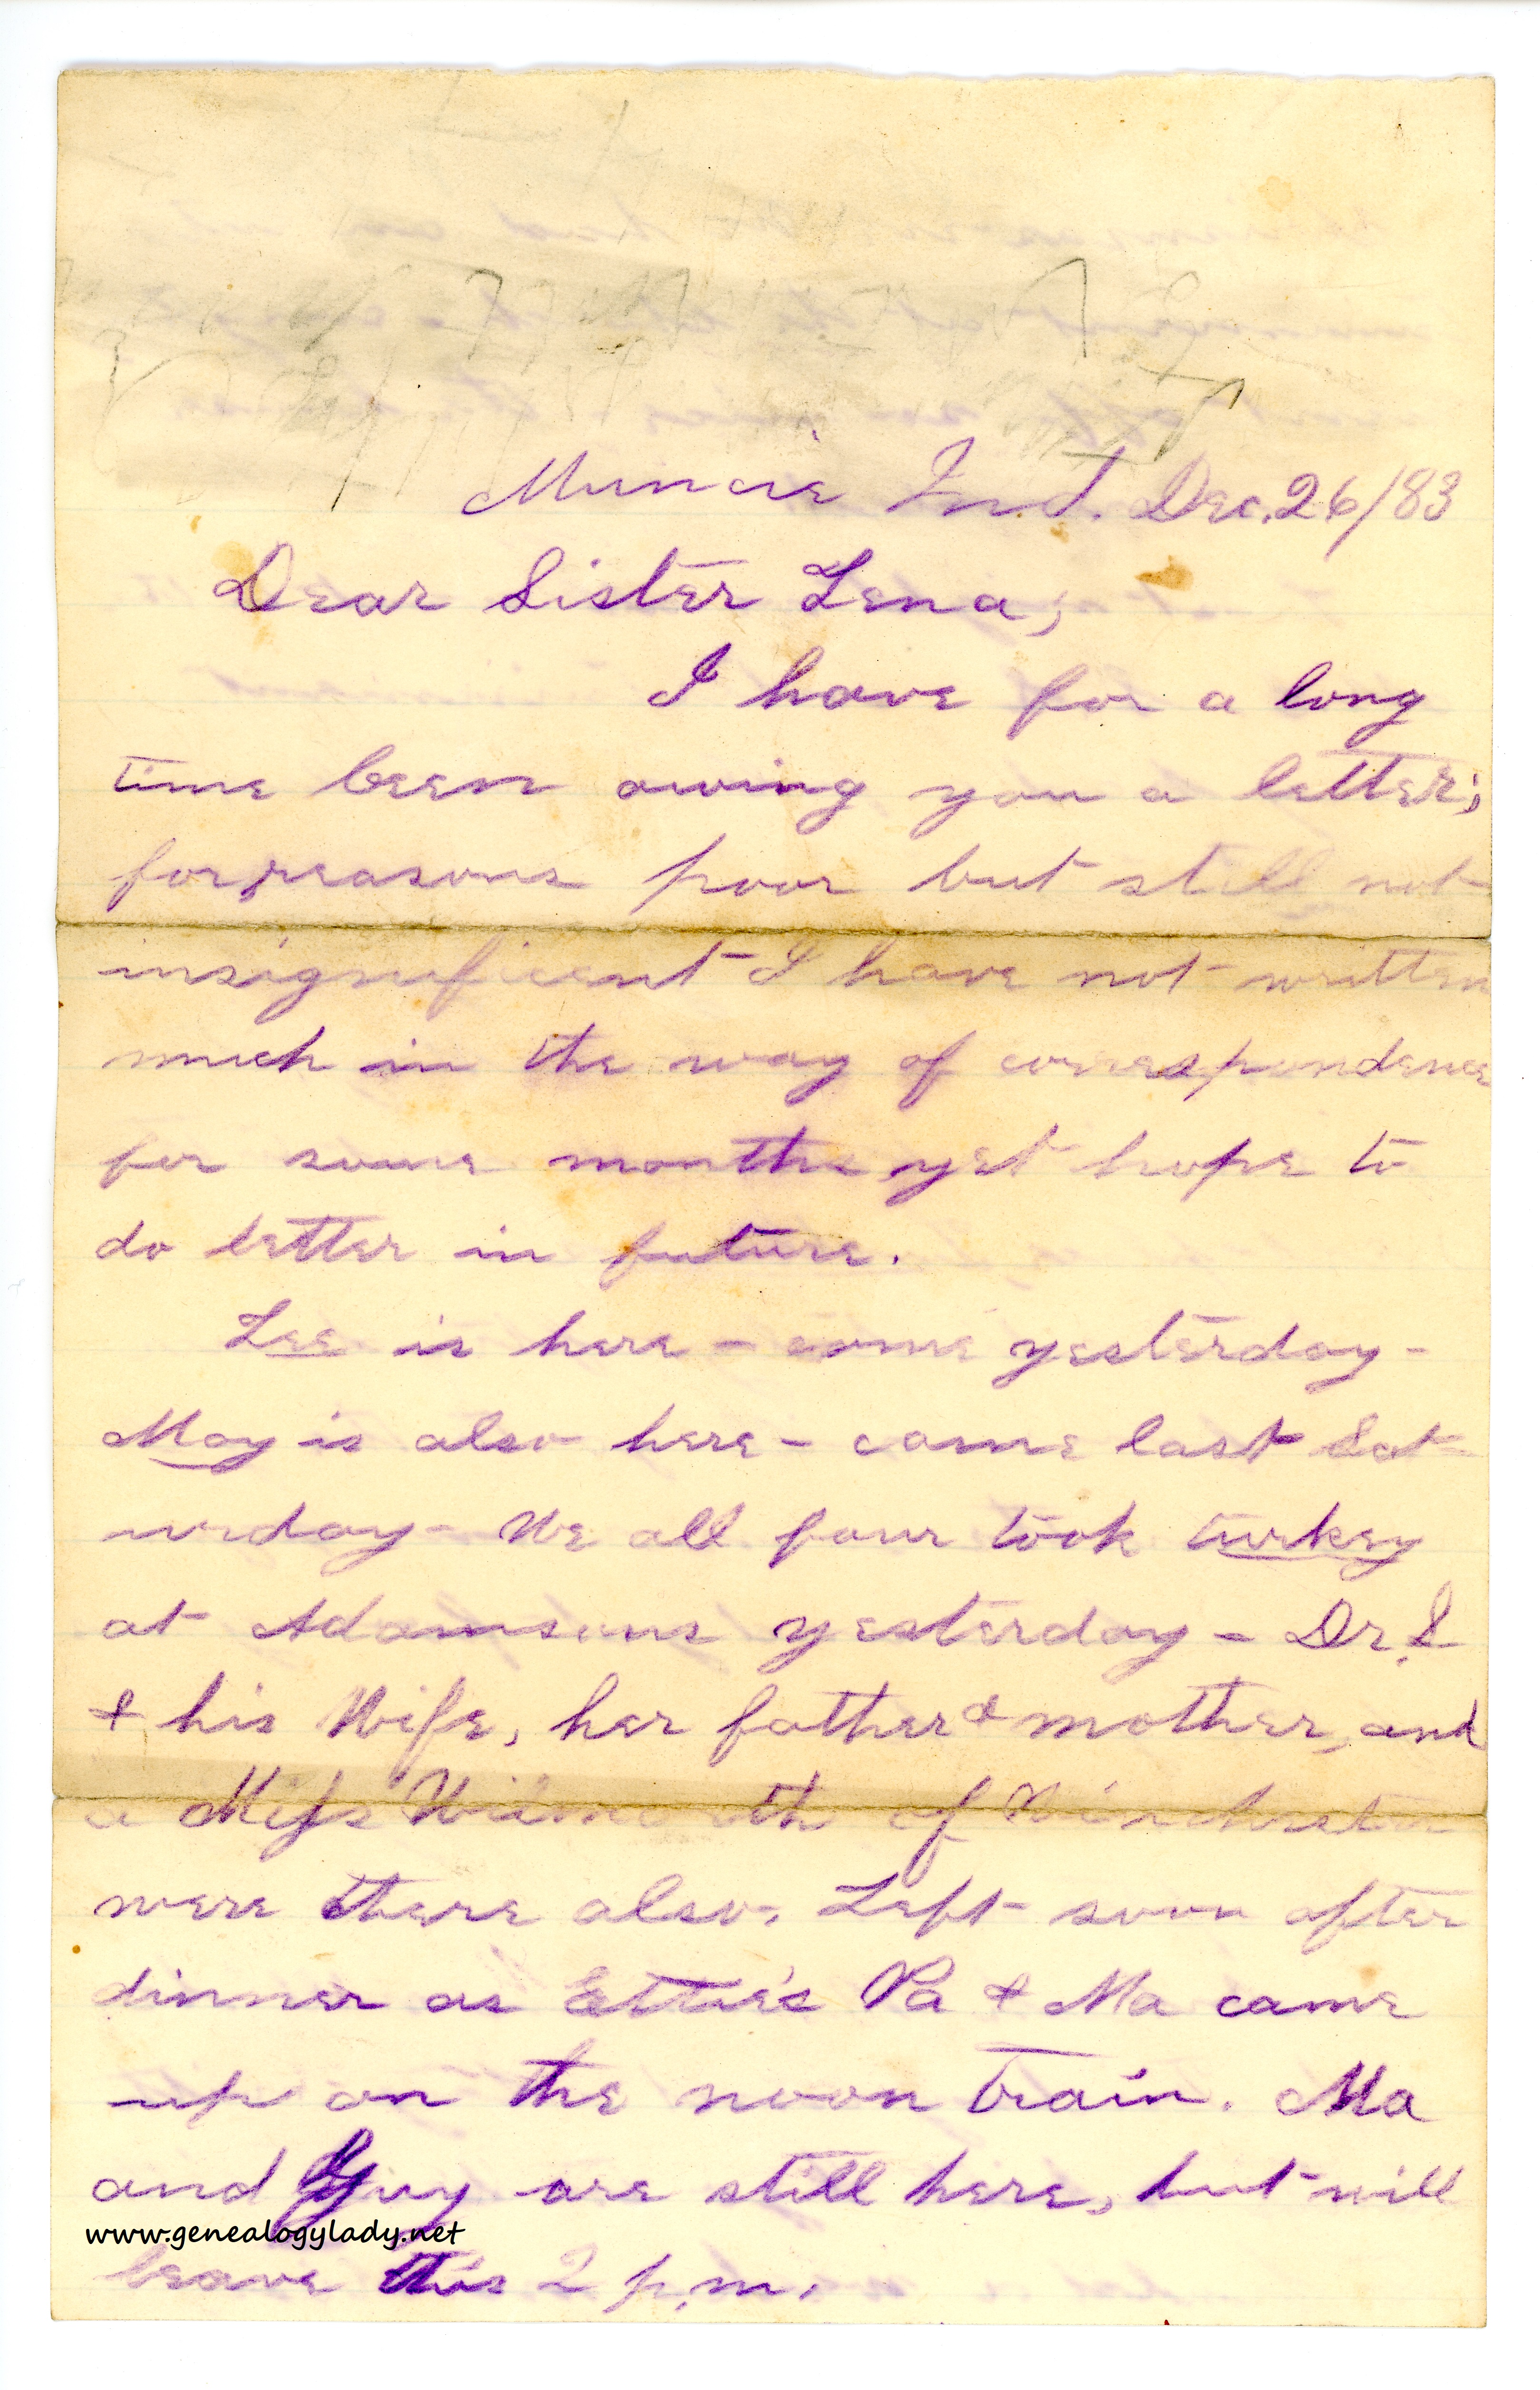 Muncie Ind. Dec. 26/83
Dear Sister Lena,
I have for a long
time been owing you a letter;
for reasons poor but still not
insignificant I have not written
much in the way of correspondence
for some months yet hope to
do better in future.
Lee is here - come yesterday -
May is also here - came last Sat
urday - We all four took turkey
at Adamsons yesterday - Dr. S
& his Wife, her father & mother, and
a Miss of Winchester
were there also. Left soon after
dinner as Ettie's Pa & Ma came
up on the noon train. Ma
and Guy are still here, but will
www.genealogylady.net
leave this 2 p.m.